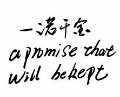 一诺千金
a promise that
will be kept